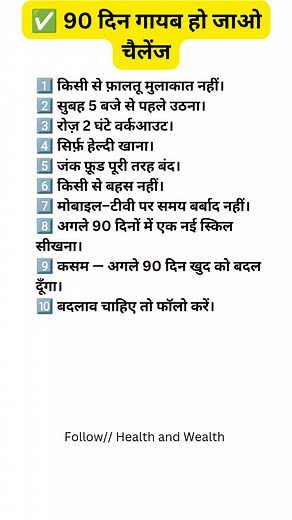 ✅ 90 दिन गायब हो जाओ
चैलेंज
1️⃣ किसी से फ़ालतू मुलाकात नहीं।
2️⃣ सुबह 5 बजे से पहले उठना।
3️⃣ रोज़ 2 घंटे वर्कआउट।
4️⃣ सिर्फ़ हेल्दी खाना।
5️⃣ जंक फ़ूड पूरी तरह बंद।
6️⃣ किसी से बहस नहीं।
7️⃣ मोबाइल–टीवी पर समय बर्बाद नहीं।
8️⃣ अगले 90 दिनों में एक नई स्किल
सीखना।
9️⃣ कसम — अगले 90 दिन खुद को बदल
दूँगा।
🔟 बदलाव चाहिए तो फॉलो करें।
Follow// Health and Wealth